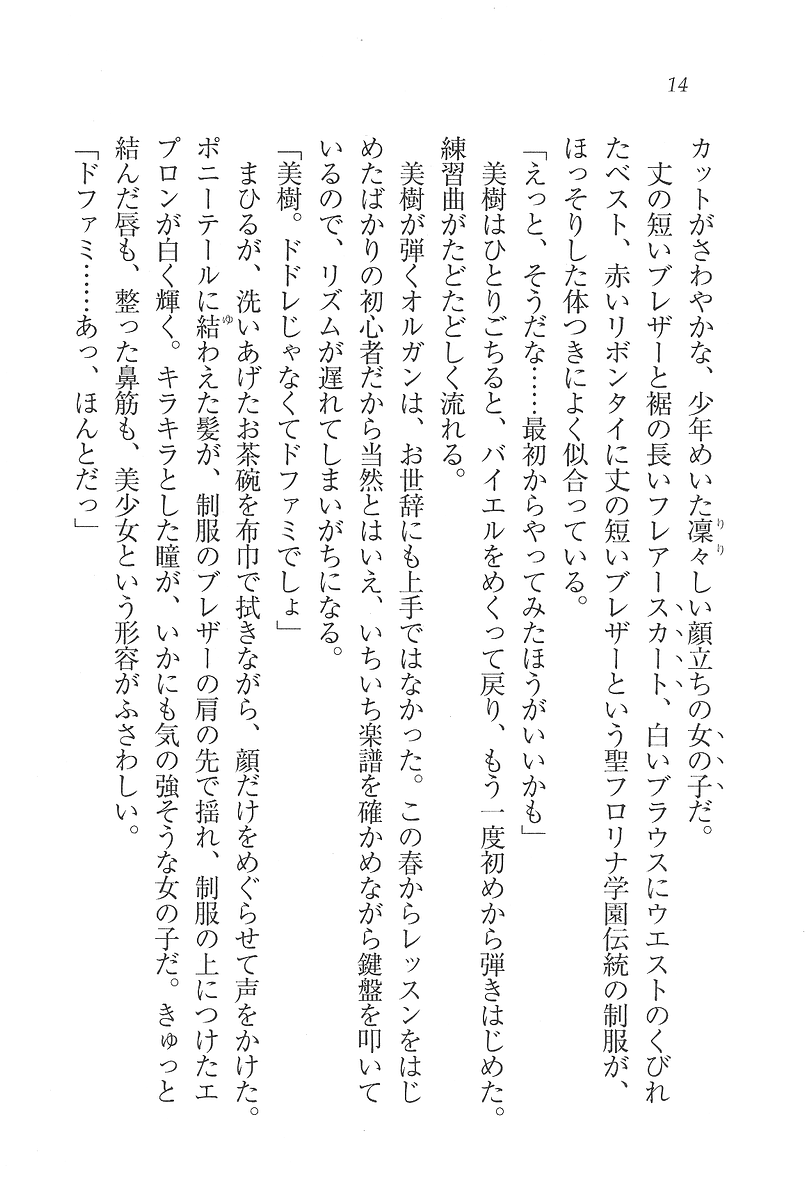 14
カットがさわやかな、少年めいた凛々しい顔立ちの女の子だ。
　丈の短いブレザーと裾の長いフレアースカート、白いブラウスにウエストのくびれ
たベスト、赤いリボンタイに丈の短いブレザーという聖フロリナ学園伝統の制服が、
ほっそりした体つきによく似合っている。
「えっと、そうだな……最初からやってみたほうがいいかも」
　美樹はひとりごちると、バイエルをめくって戻り、もう一度初めから弾きはじめた。
練習曲がたどたどしく流れる。
　美樹が弾くオルガンは、お世辞にも上手ではなかった。この春からレッスンをはじ
めたばかりの初心者だから当然とはいえ、いちいち楽譜を確かめながら鍵盤を叩いて
いるので、リズムが遅れてしまいがちになる。
「美樹。ドドレじゃなくてドファミでしょ」
　まひるが、洗いあげたお茶碗を布巾で拭きながら、顔だけをめぐらせて声をかけた。
ポニーテールに結わえた髪が、制服のブレザーの肩の先で揺れ、制服の上につけたエ
プロンが白く輝く。キラキラとした瞳が、いかにも気の強そうな女の子だ。きゅっと
結んだ唇も、整った鼻筋も、美少女という形容がふさわしい。
「ドファミ……あっ、ほんとだっ」